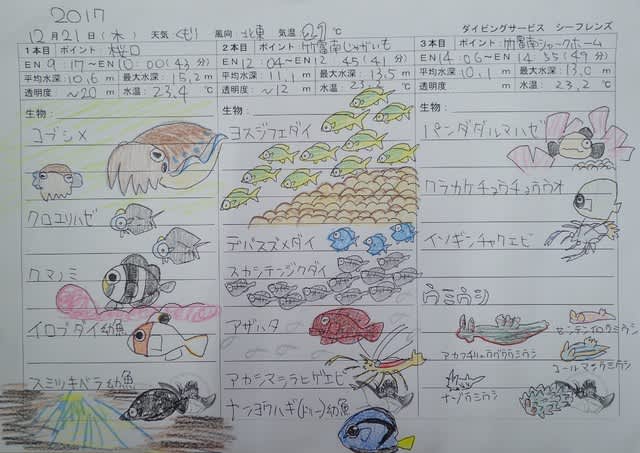 2017
12月21日(木) 天気 くもり 風向 北東 気温 29℃ ダイビングサービス シーフレンズ
1本目 ポイント: 桜口
EN 9:17〜EN 10:00(43分)
平均水深:10.6m 最大水深:15.2m
透明度: 〜20m 水温:23.4℃
生物:
コブシメ
クロユリハゼ
クマノミ
イロブダイ幼魚
スミツキベラ幼魚
2本目 ポイント: 竹富南じゃがいも
EN 12:04〜EN 12:45(41分)
平均水深:11.1m 最大水深:13.5m
透明度: 〜12m 水温:23.2℃
生物:
ヨスジフエダイ
デバスズメダイ
スカシテンジクダイ
アザハタ
アカシマシラヒゲエビ
ナンヨウハギ(ドリー)幼魚
3本目 ポイント: 竹富南シャークホーム
EN 14:06〜EN 14:55(49分)
平均水深:10.1m 最大水深:13.0m
透明度: m 水温:23.2℃
生物:
パンダダルマハゼ
クラカケチョウチョウウオ
イソギンチャクエビ
ウミウシ
センテンイロウミウシ
アカフチリュウグウウミウシ
コールマンウミウシ